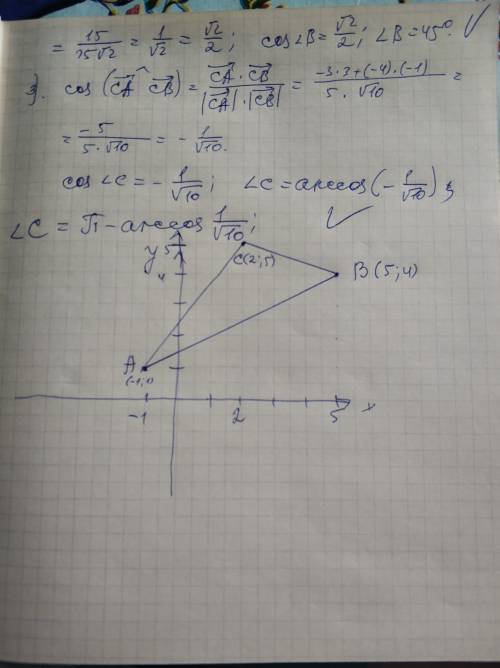 = 15/15√2 = 1/√2 = √2/2; cos∠B = √2/2; ∠B = 45°. ✓
3). cos(C͞A ^ C͞B) = C͞A · C͞B / |C͞A| · |C͞B| = -3·3+(-4)·(-1) / 5·√10 =
= -5 / 5·√10 = - 1/√10.
cos∠C = - 1/√10; ∠C = arccos(- 1/√10);
∠C = π - arccos 1/√10; ✓
y 5 C(2;5)
4 B(5;4)
A
(-1;1)
-1 2 5 x